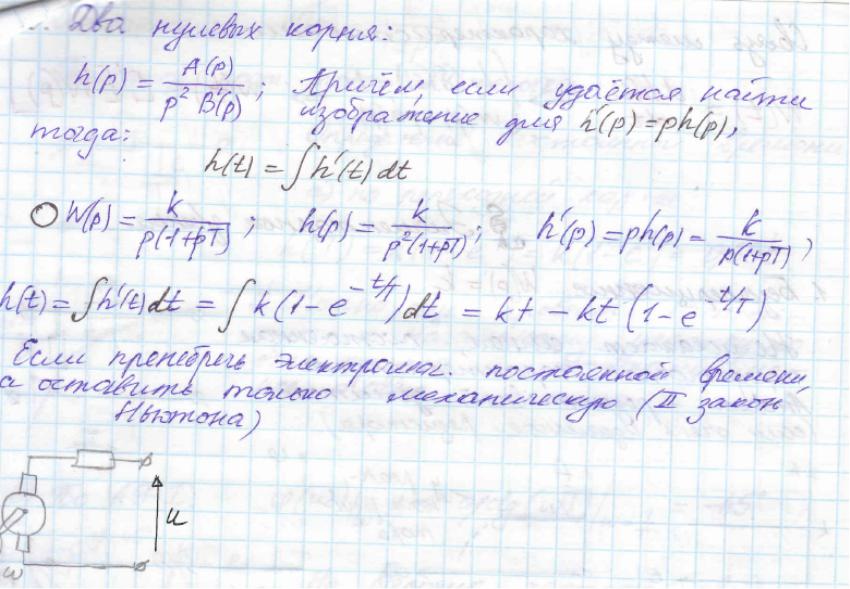 Два нулевых корня:
h(p) = A(p) / p² B'(p) ; Причём, если удаётся найти
изображение для h'(p) = ph(p),
тогда:
h(t) = ∫h'(t) dt
W(p) = k / p(1+pT) ; h(p) = k / p²(1+pT) ; h'(p) = ph(p) = k / p(1+pT) ,
h(t) = ∫h'(t) dt = ∫ k (1 - e^(-t/T)) dt = kt - kt (1 - e^(-t/T))
Если пренебречь электромаг. постоянной времени,
а оставить только механическую (II закон
Ньютона)
u
ω